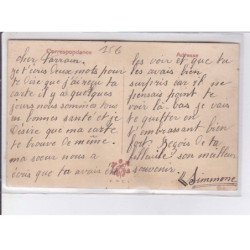 Correspondance
156
Adresse
cher Parrain
Je t'ecris deux mots pour
te dire que j'ai reçu ta
carte il y a quelques
jours nous sommes tous
en bonnes santé et je
désire que ma carte
te trouve de même.
ma soeur nous a
écris que tu avais
les voir et que tu
les avais bien
surpris car et ne
pensaient point te
voir là bas je vais
te quitter en
t'embrassant bien
fort Reçois de ta
filleule son meilleur
souvenir.
Simmone